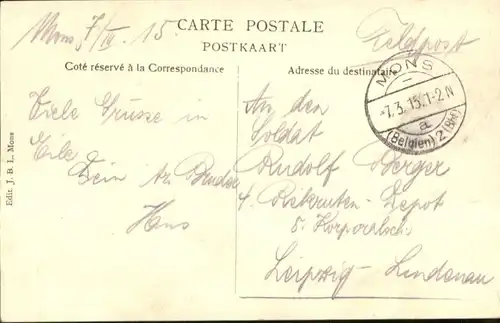 CARTE POSTALE
POSTKAART
Mons, 7/III. 15.
Feldpost
Coté réservé à la Correspondance
Adresse du destinataire
MONS
-7.3.15.1-2.N
a
(Belgien) 2 (Bhf)
Viele Grüsse in
Eile
Dein tr. Bruder
Hans
An den
Soldat
Rudolf Berger
4. Rekruten-Depot
5. Korporalsch.
Leipzig-Lindenau
Edit. J. B. L. Mons